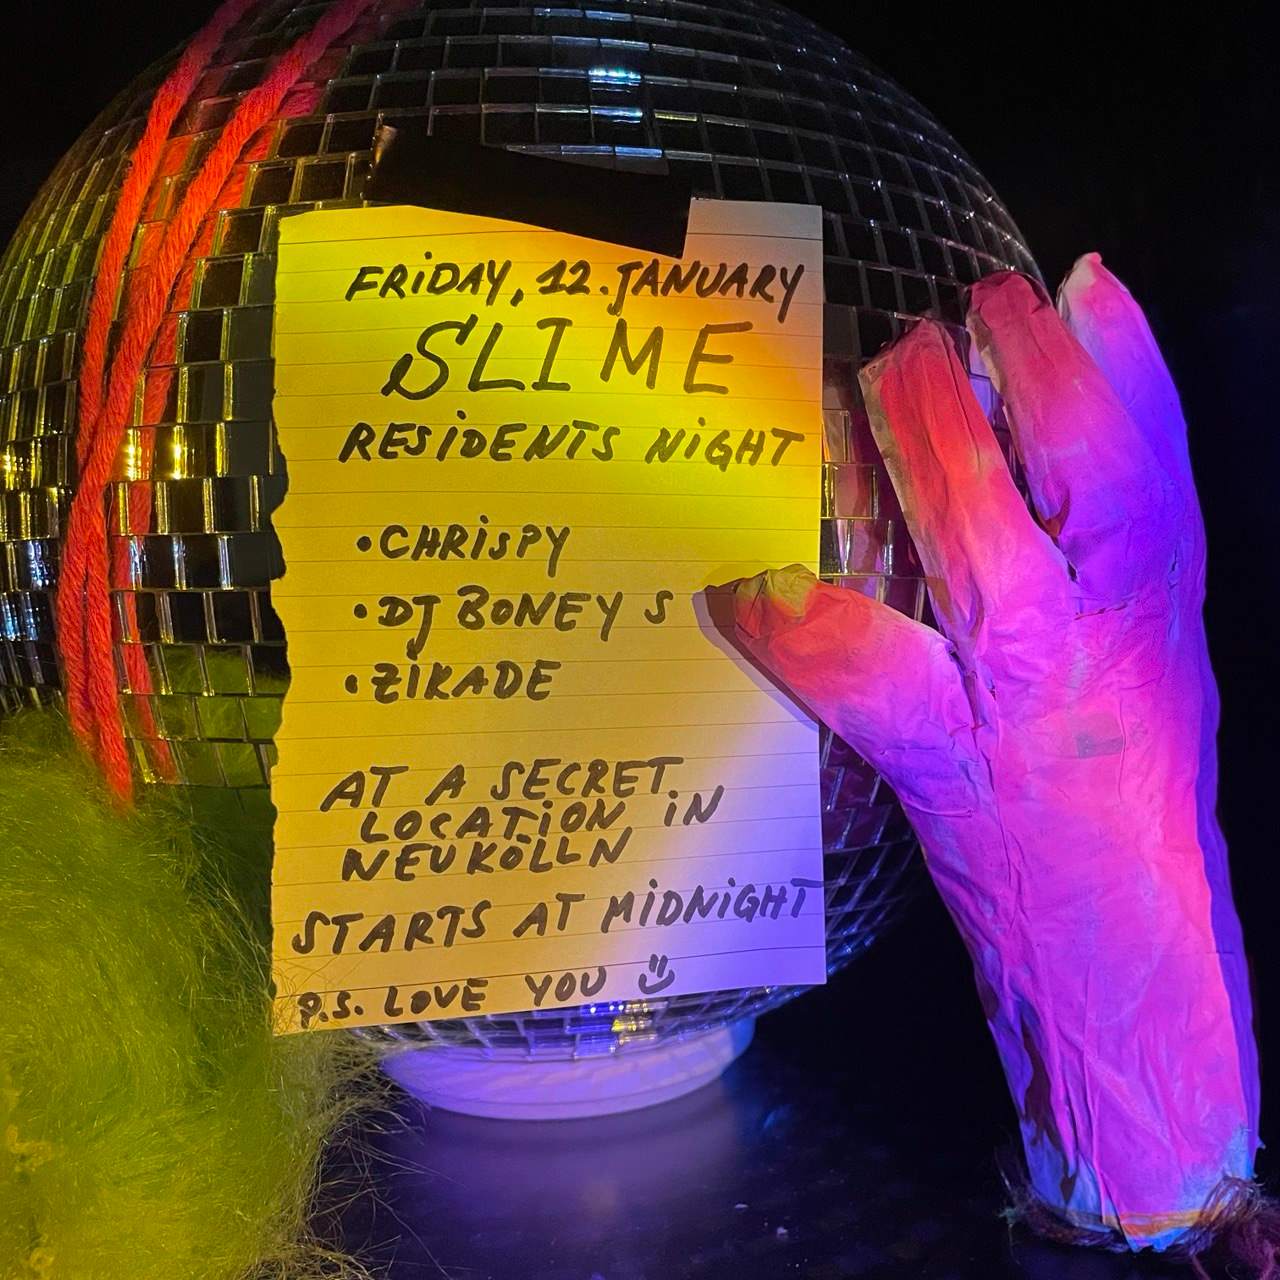 FRiDAY, 12. JANUARY
SLIME
RESiDENTS NiGHT
• CHRisPY
• DJ BONEY S
• ZiKADE
AT A SECRET
LOCATiON iN
NEUKÖLLN
STARTS AT MiDNiGHT
P.S. LOVE YOU :)